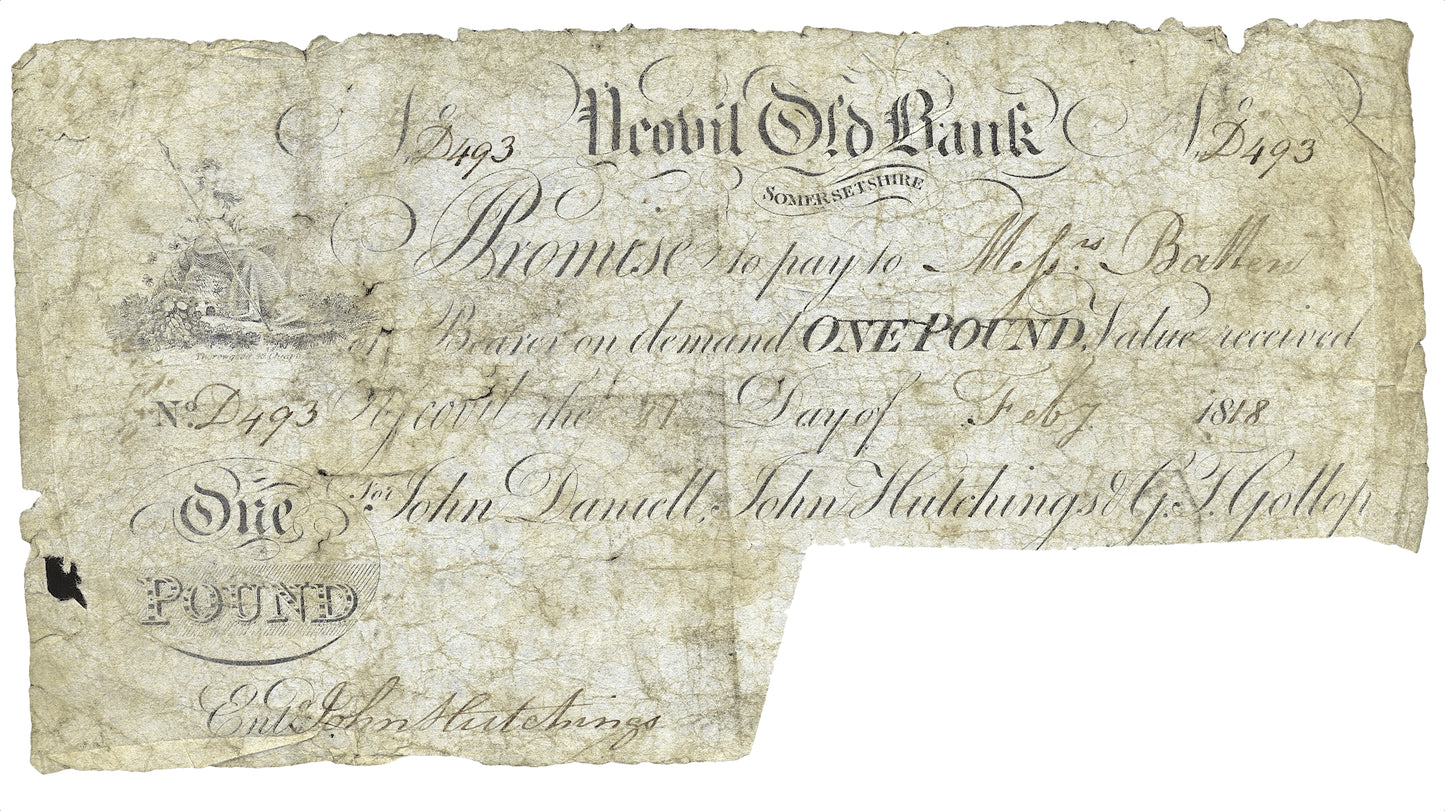 No D493 Yeovil Old Bank No D493
SOMERSETSHIRE
Promise to pay to Messrs Batten
or Bearer on demand ONE POUND Value received
No. D493 Yeovil the Day of Feby 1818
For John Daniell, John Hutchings & G. T. Gollop
One
POUND
Entd John Hutchings